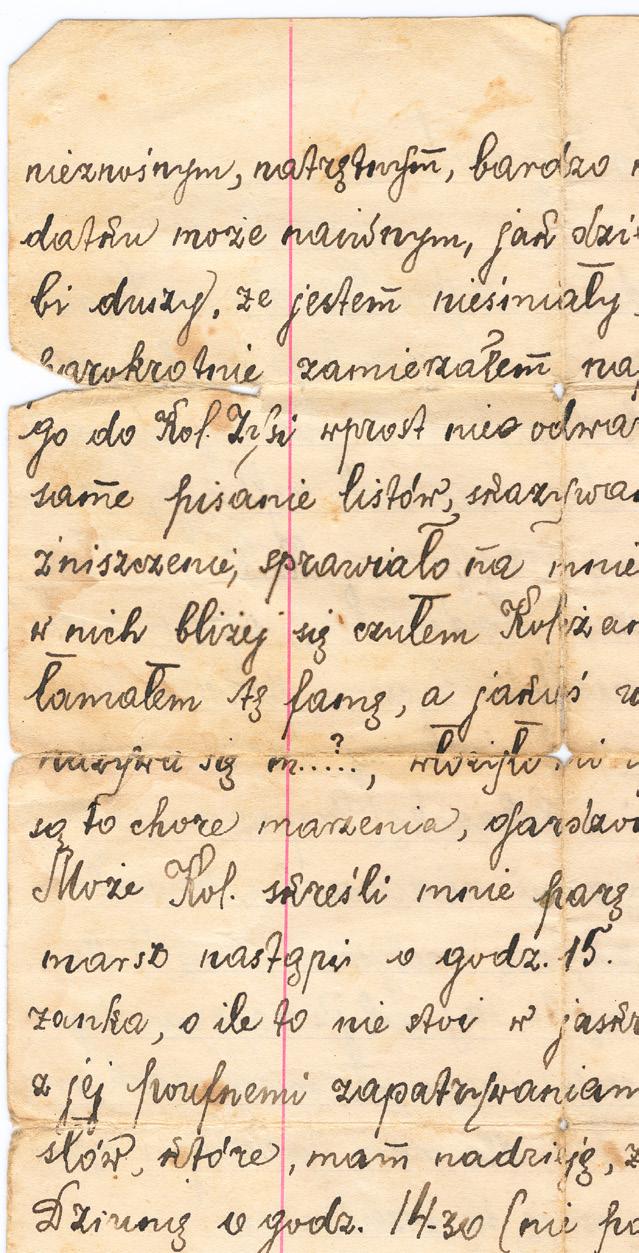 nieznośnym, natrętnym, bardzo
datku może naiwnym, jak dzi
bi duszy, że jestem nieśmiały
zamierzałem na
go do Kol. Zysi wprost nie odwa
same pisanie listów, skazywa
zniszczenie, sprawiało na mnie
w nich bliżej się czułem Koleżan
łamałem tę famę, a jakuś
nazywa się m....?.., włożyło mi
są to chore marzenia,
Może Kol. skreśli mnie parę
marsz nastąpi o godz. 15.
zanka, o ile to nie stoi w jaskr
z jej poufnemi zapatrywaniam
słów, które, mam nadzieję, ż
Dziunię o godz. 14.30 (nie po